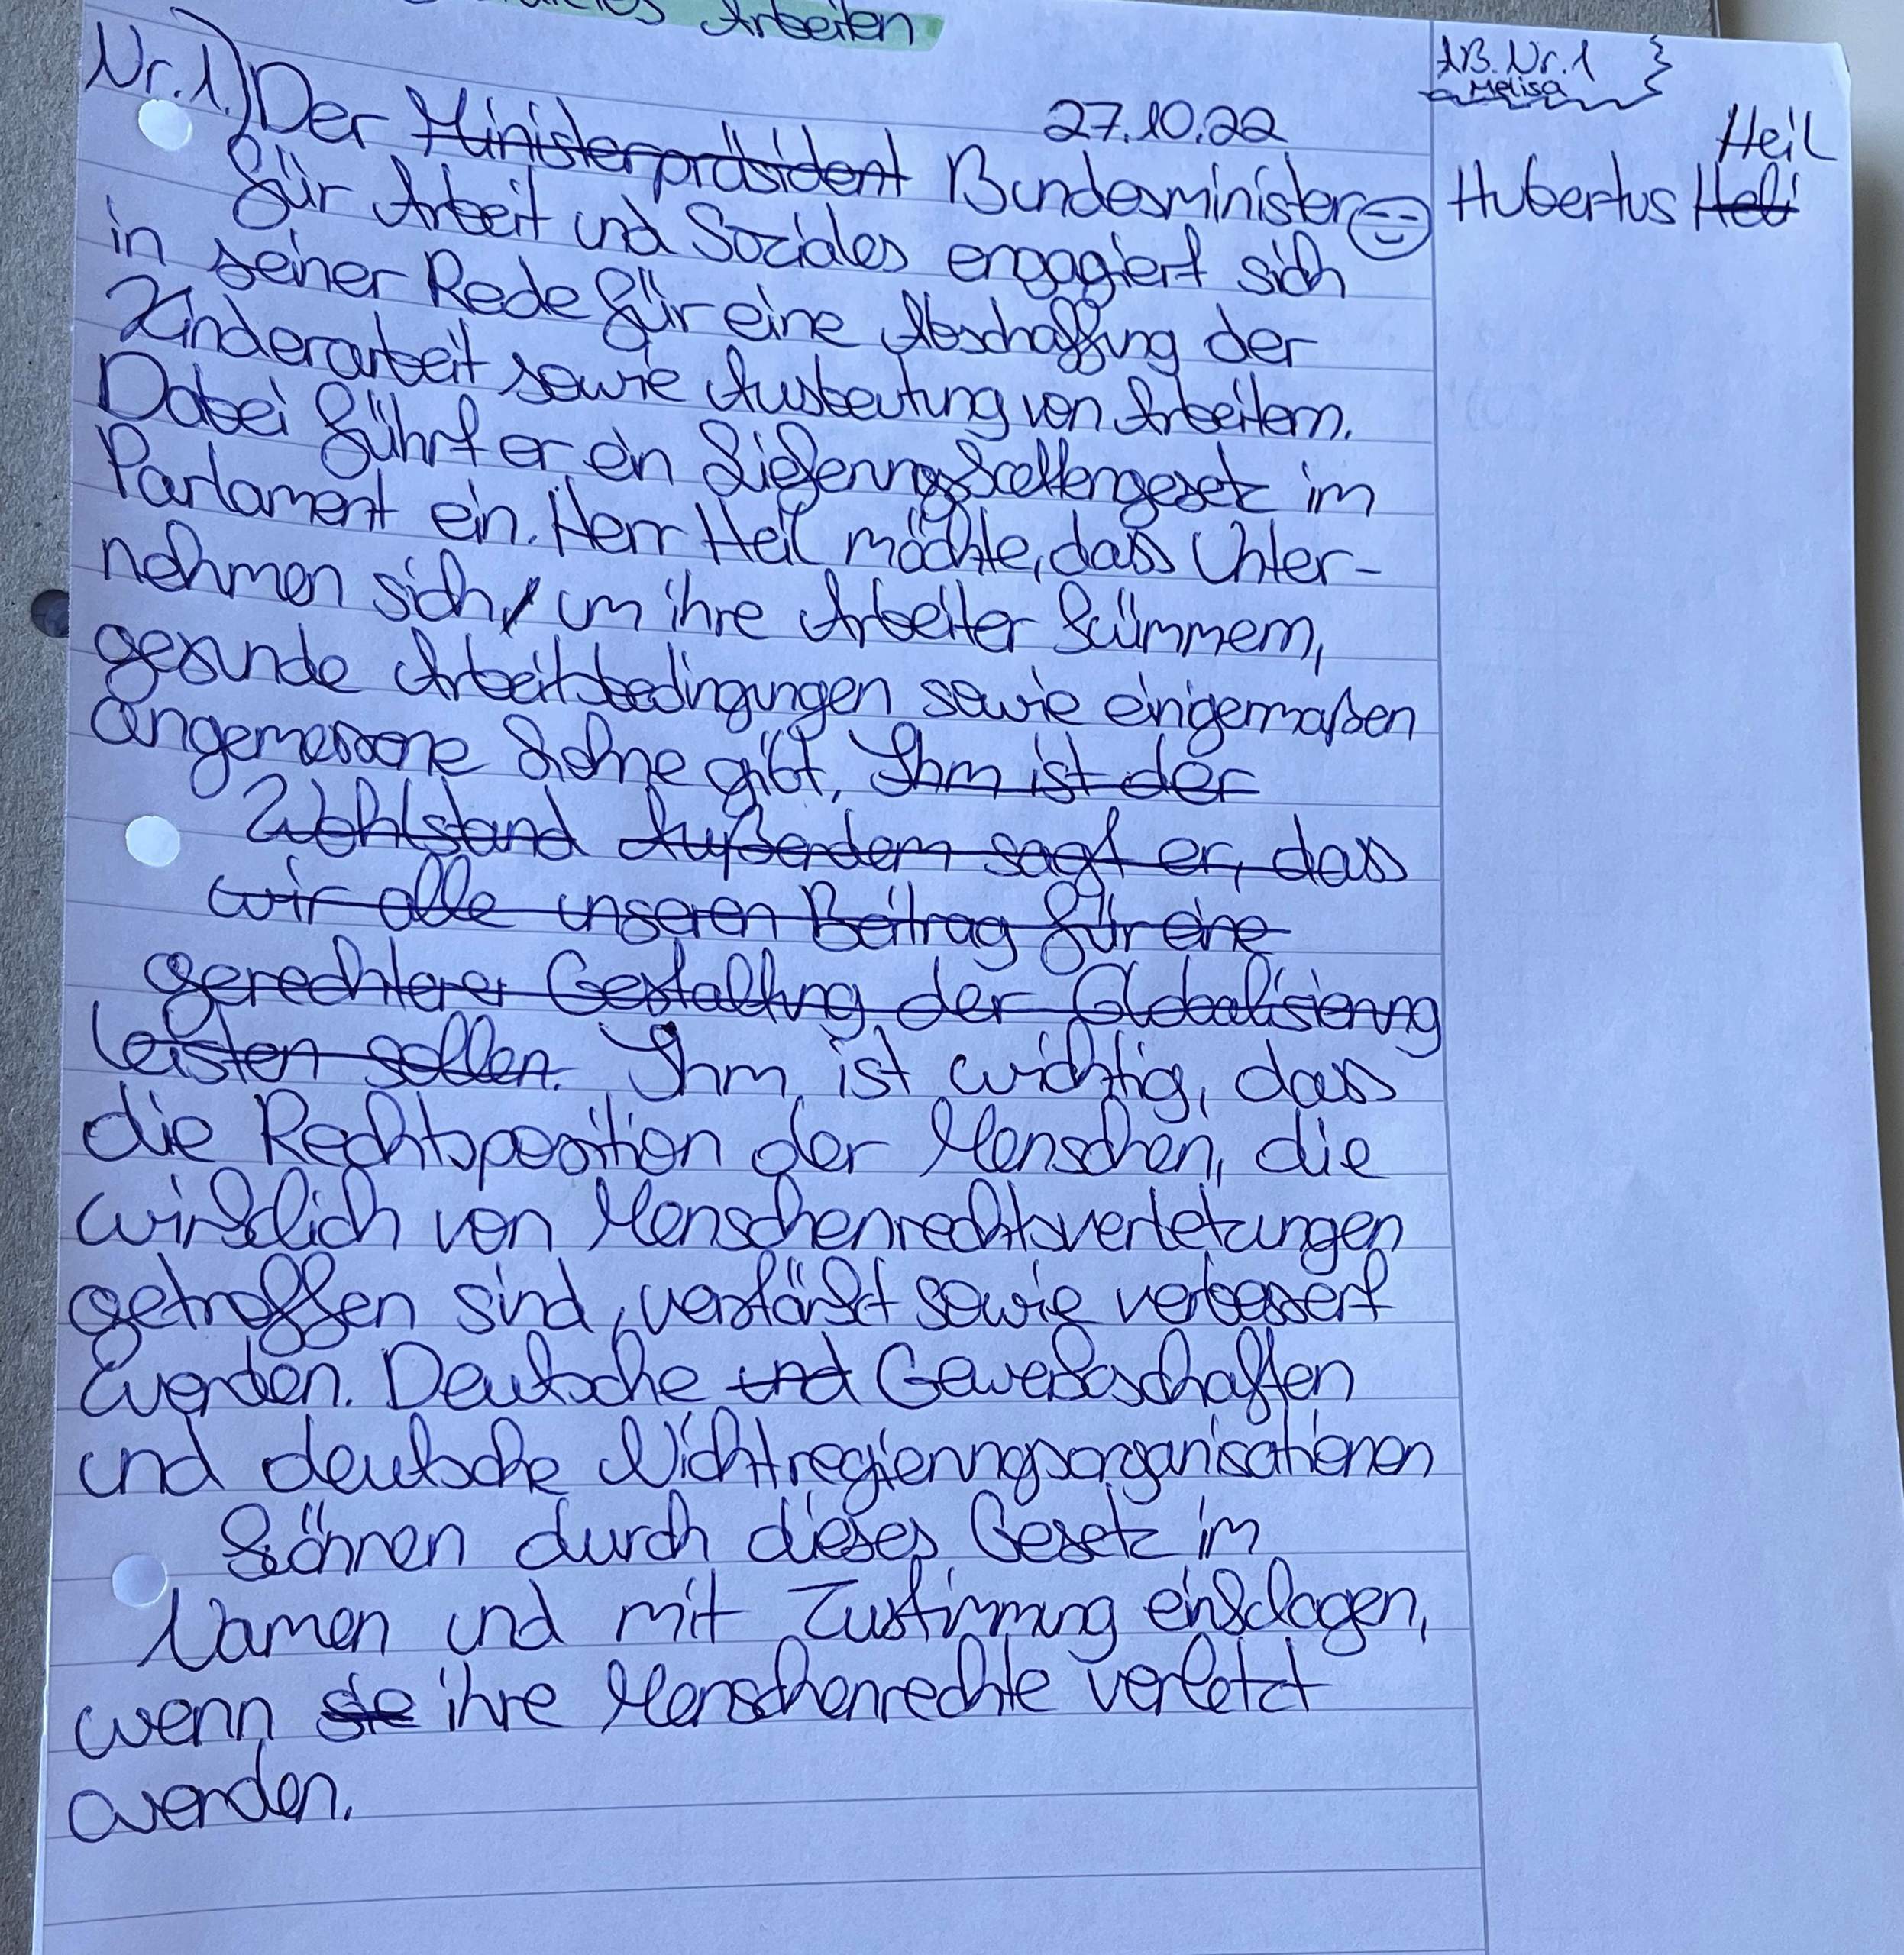 Arbeiten
AB. Nr. 1
Melisa
27.10.22
Nr. 1.) Der Ministerpräsident Bundesminister Hubertus Heli Heil
für Arbeit und Soziales engagiert sich
in seiner Rede für eine Abschaffung der
Kinderarbeit sowie Ausbeutung von Arbeitern.
Dabei führt er ein Lieferungskettengesetz im
Parlament ein. Herr Heil möchte, dass Unter-
nehmen sich, um ihre Arbeiter kümmern,
gesunde Arbeitsbedingungen sowie einigermaßen
angemessene Löhne gibt. Ihm ist der
Wohlstand Außerdem sagt er, dass
wir alle unseren Beitrag für eine
gerechterer Gestaltung der Globalisierung
leisten sollen. Ihm ist wichtig, dass
die Rechtsposition der Menschen, die
wirklich von Menschenrechtsverletzungen
getroffen sind, verstärkt sowie verbessert
werden. Deutsche und Gewerkschaften
und deutsche Nichtregierungsorganisationen
können durch dieses Gesetz im
Namen und mit Zustimmung einklagen,
wenn sie ihre Menschenrechte verletzt
werden.